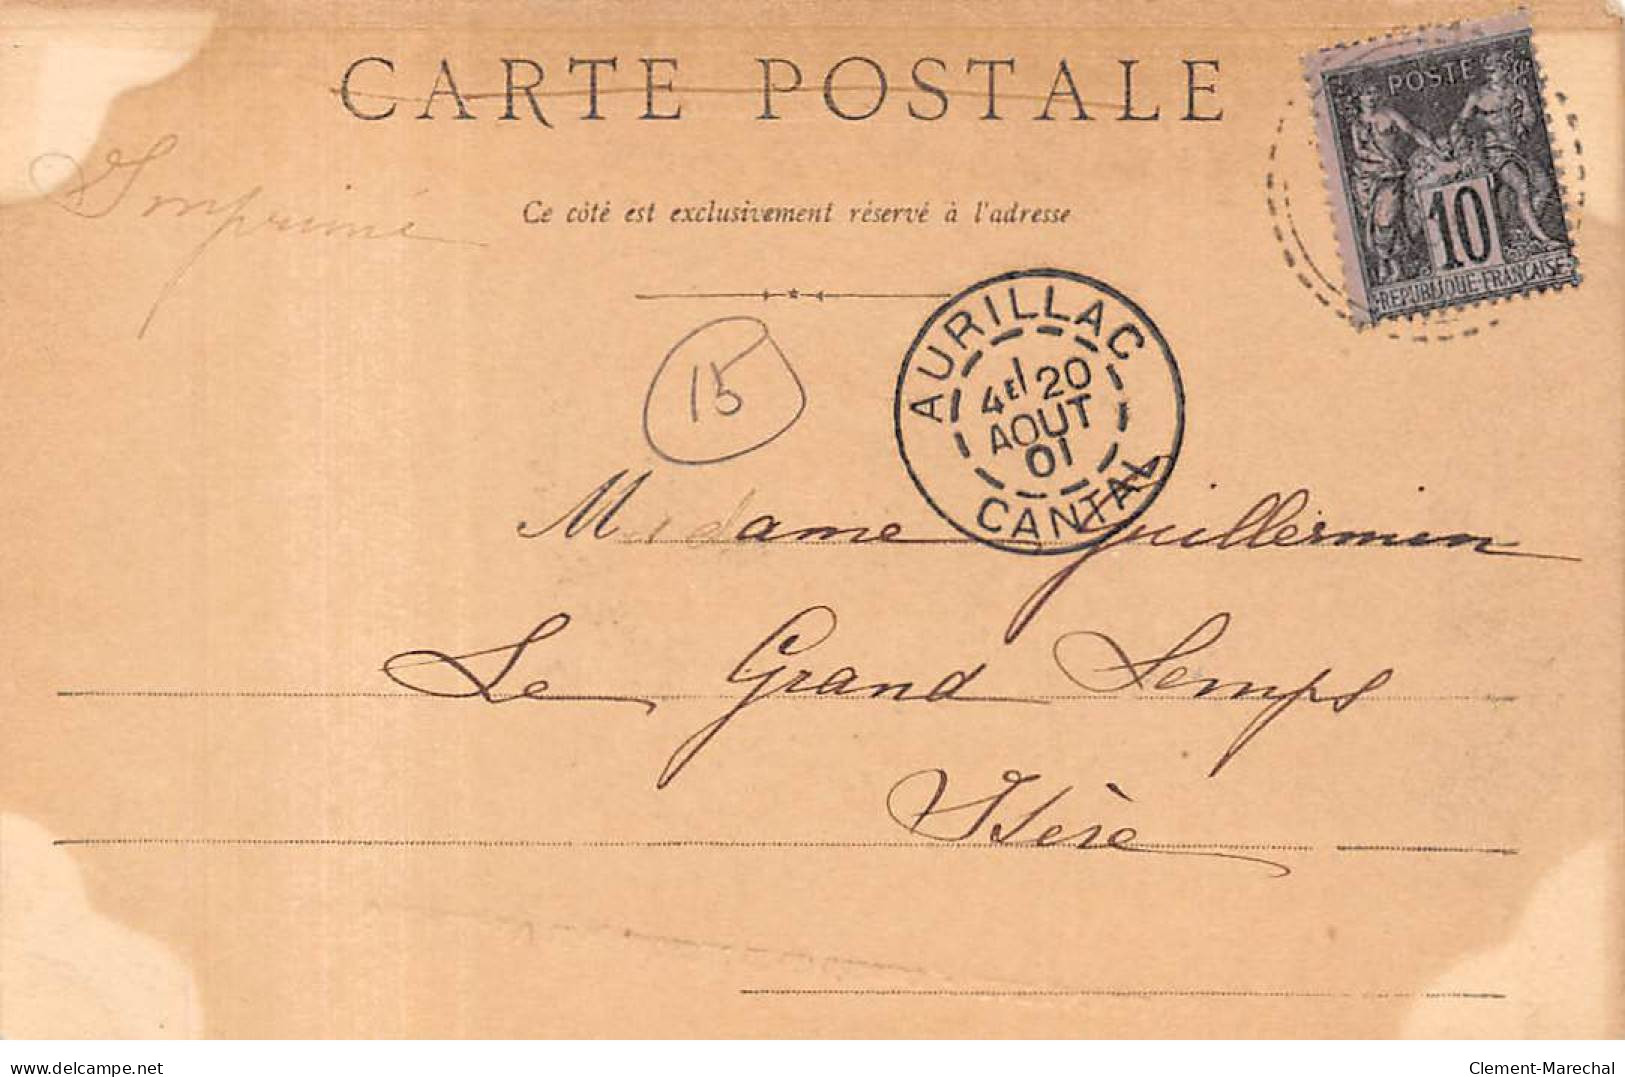 CARTE POSTALE
POSTE
10
REPUBLIQUE FRANÇAISE
Imprimé
Ce côté est exclusivement réservé à l'adresse
15
AURILLAC
4E 20
AOUT
01
CANTAL
Madame Guillermin
Le Grand Lemps
Isère
www.delcampe.net
Clement-Marechal